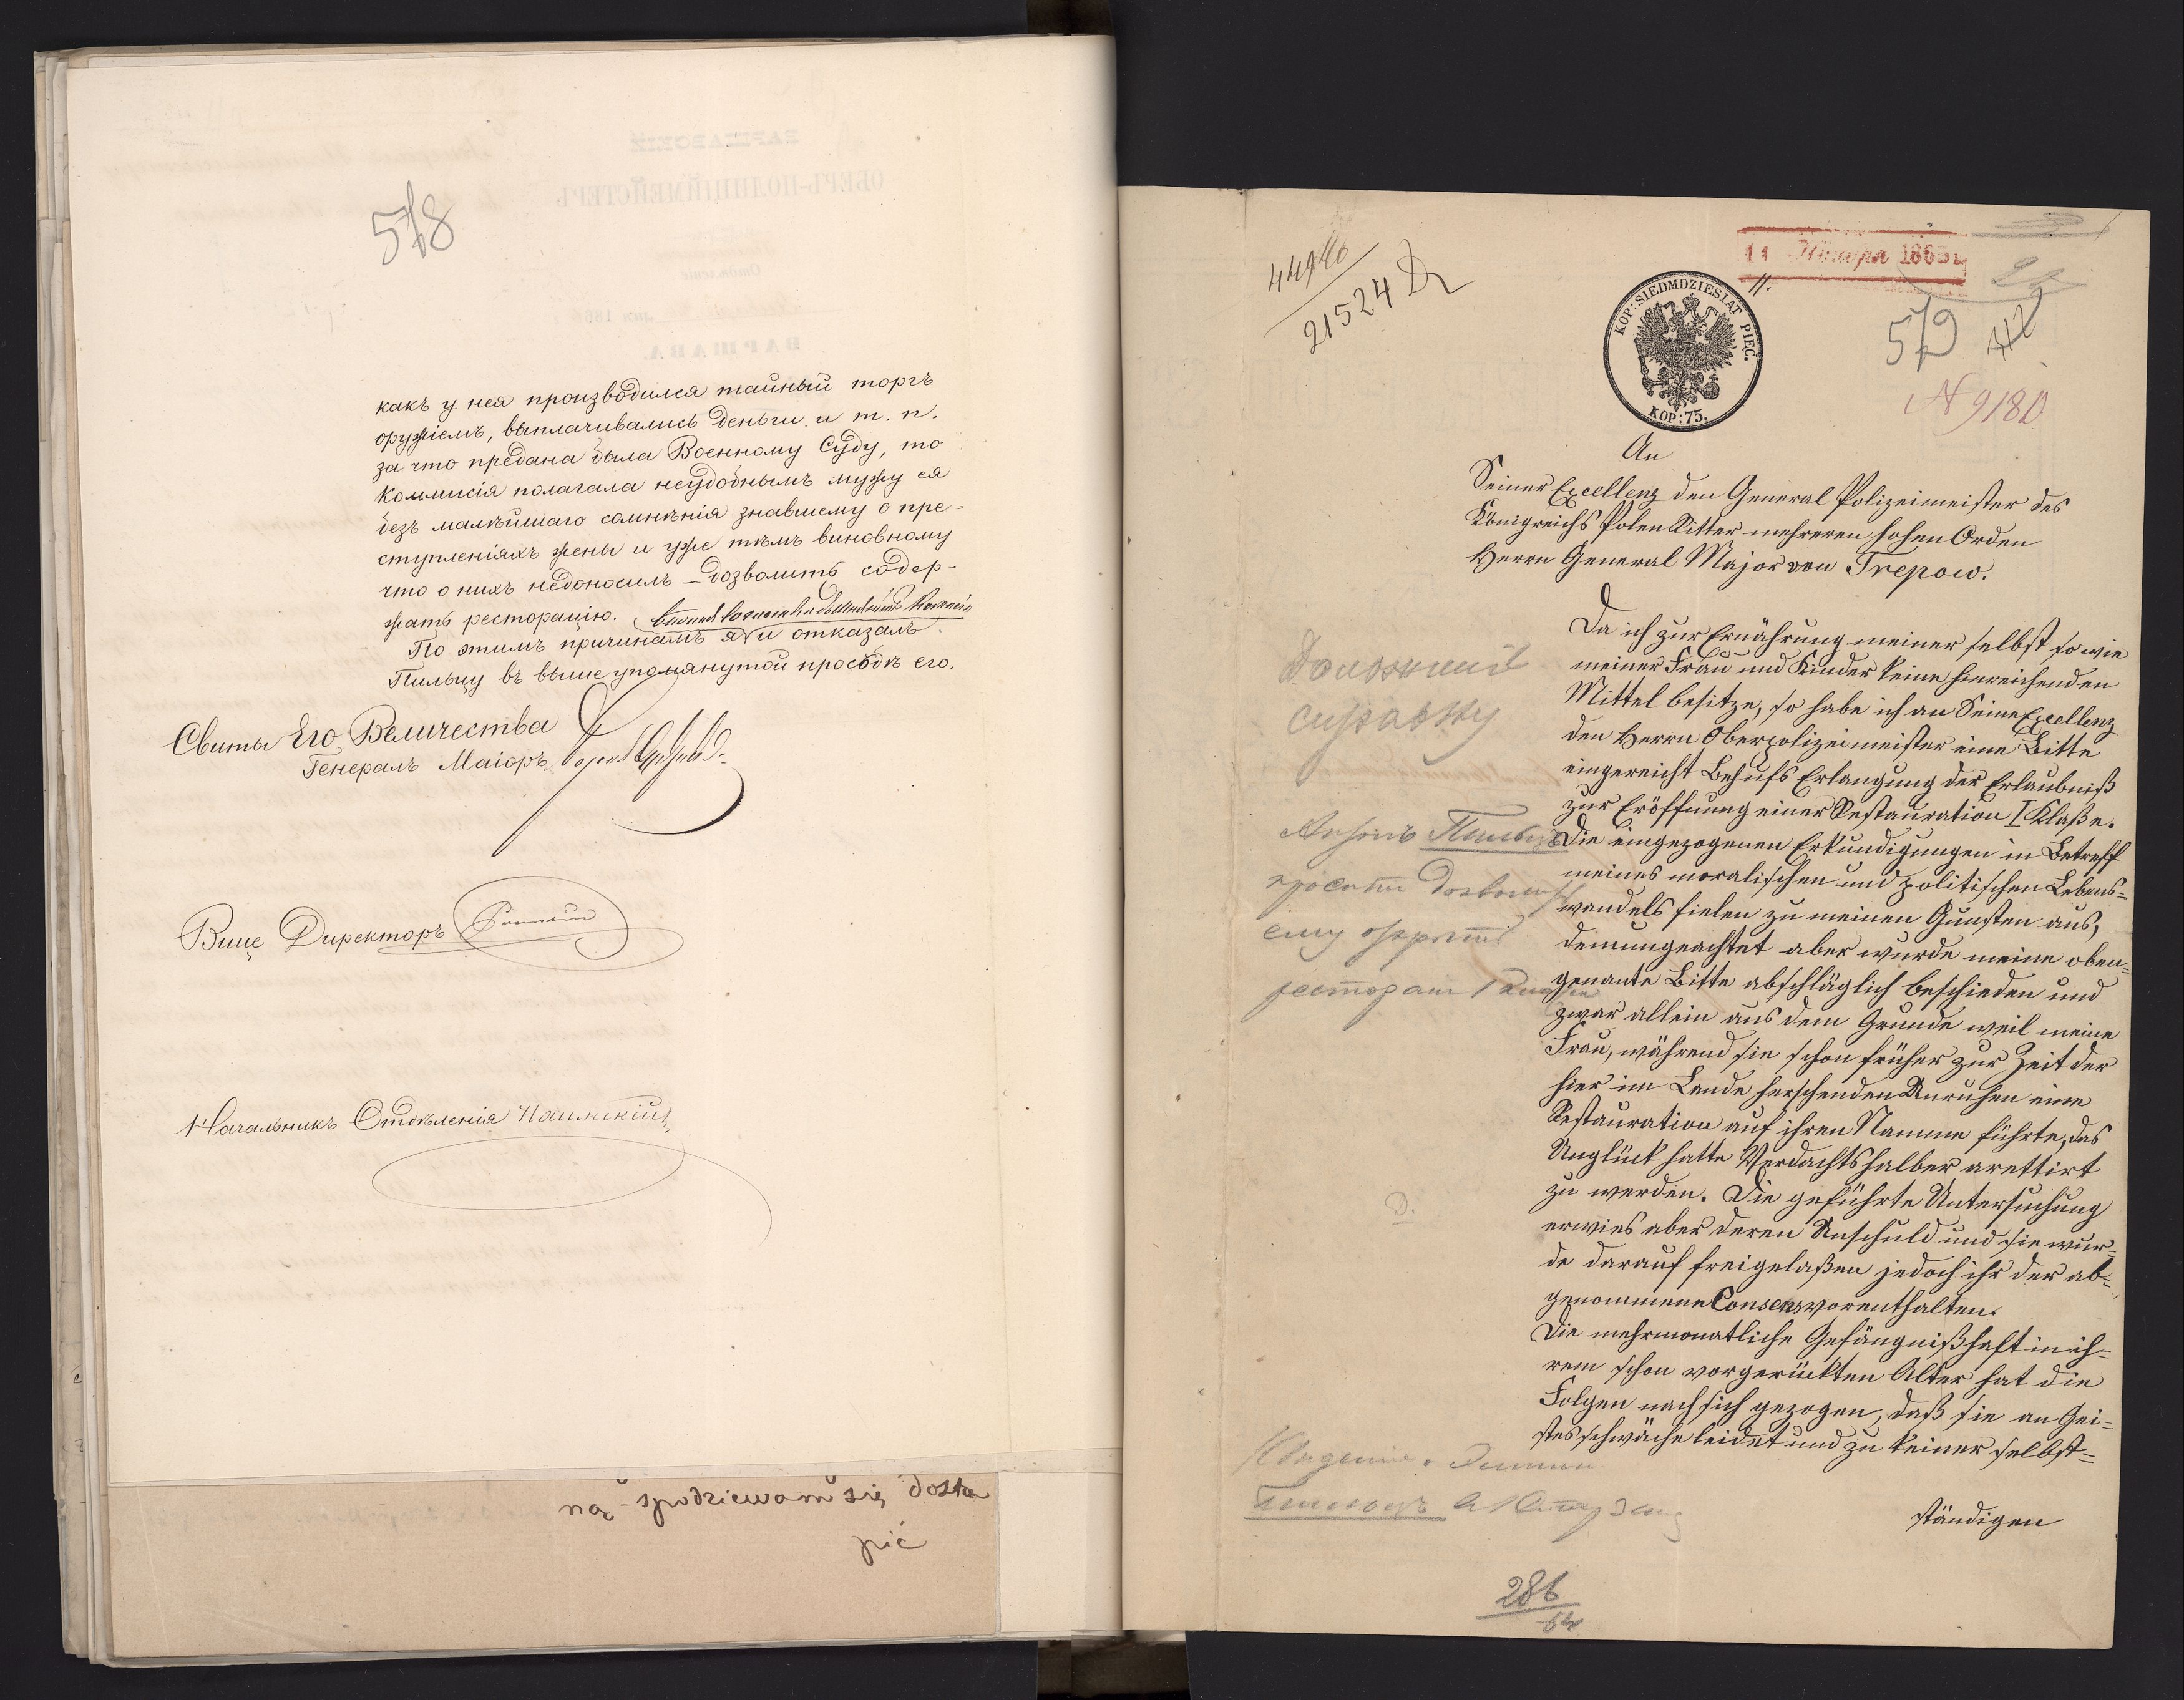 578
какъ у нея производился тайный торгъ
оружіемъ, выплачивались деньги и т. п.
за что предана была Военному Суду, то
Коммисія полагала неудобнымъ мужу ея
безъ малѣйшаго сомнѣнія знавшему о пре-
ступленіяхъ жены и уже тѣмъ виновному
что о нихъ недоносилъ – дозволить содер-
жать ресторацію.
По этимъ причинамъ я и отказалъ
Пильцу въ выше упомянутой просьбѣ его.
Свиты Его Величества
Генералъ Маіоръ
Вице Директоръ
Начальникъ Отдѣленія
ną - spodziewam się dostą
pić
21524
11 Января 1865
11.
KOP: SIEDMDZIESIĄT PIĘĆ.
KOP: 75.
579
N 9180
An
Seiner Excellenz den General Polizeimeister des
Königreichs Polen Ritter mehreren hohen Orden
Herrn General Major von Trepow.
Da ich zur Ernährung meiner selbst so wie
meiner Frau und Kinder keine hinreichenden
Mittel besitze, so habe ich an Seine Excellenz
den Herrn Oberpolizeimeister eine Bitte
eingereicht Behufs Erlangung der Erlaubniß
zur Eröffnung einer Restauration I Klaße.
Die eingezogenen Erkundigungen in Betreff
meines moralischen und politischen Lebens=
wandels fielen zu meinen Gunsten aus,
demungeachtet aber wurde meine oben=
genante Bitte abschläglich beschieden und
zwar allein aus dem Grunde weil meine
Frau, während sie schon früher zur Zeit der
hier im Lande herschenden Unruhen eine
Restauration auf ihren Namme führte, das
Unglück hatte Verdachtshalber arettirt
zu werden. Die geführte Untersuchung
erwies aber deren Unschuld und sie wur=
de darauf freigelaßen jedoch ihr der ab=
genommene Consens vorenthalten.
Die mehrmonatliche Gefängnißhaft in ih=
rem schon vorgerückten Alter hat die
Folgen nach sich gezogen, daß sie an Gei=
stesschwäche leidet und zu keiner selbst=
ständigen
справку
просить дозволить
ему открыть
286